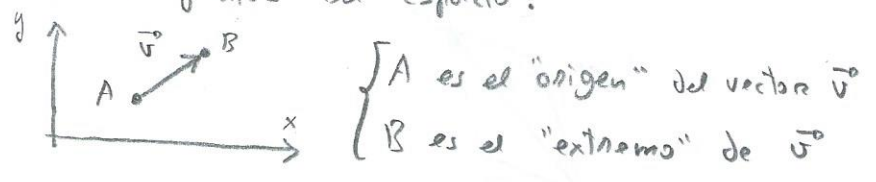 espacio.
y
v⃗ B
A
x
A es el "origen" del vector v⃗
B es el "extremo" de v⃗